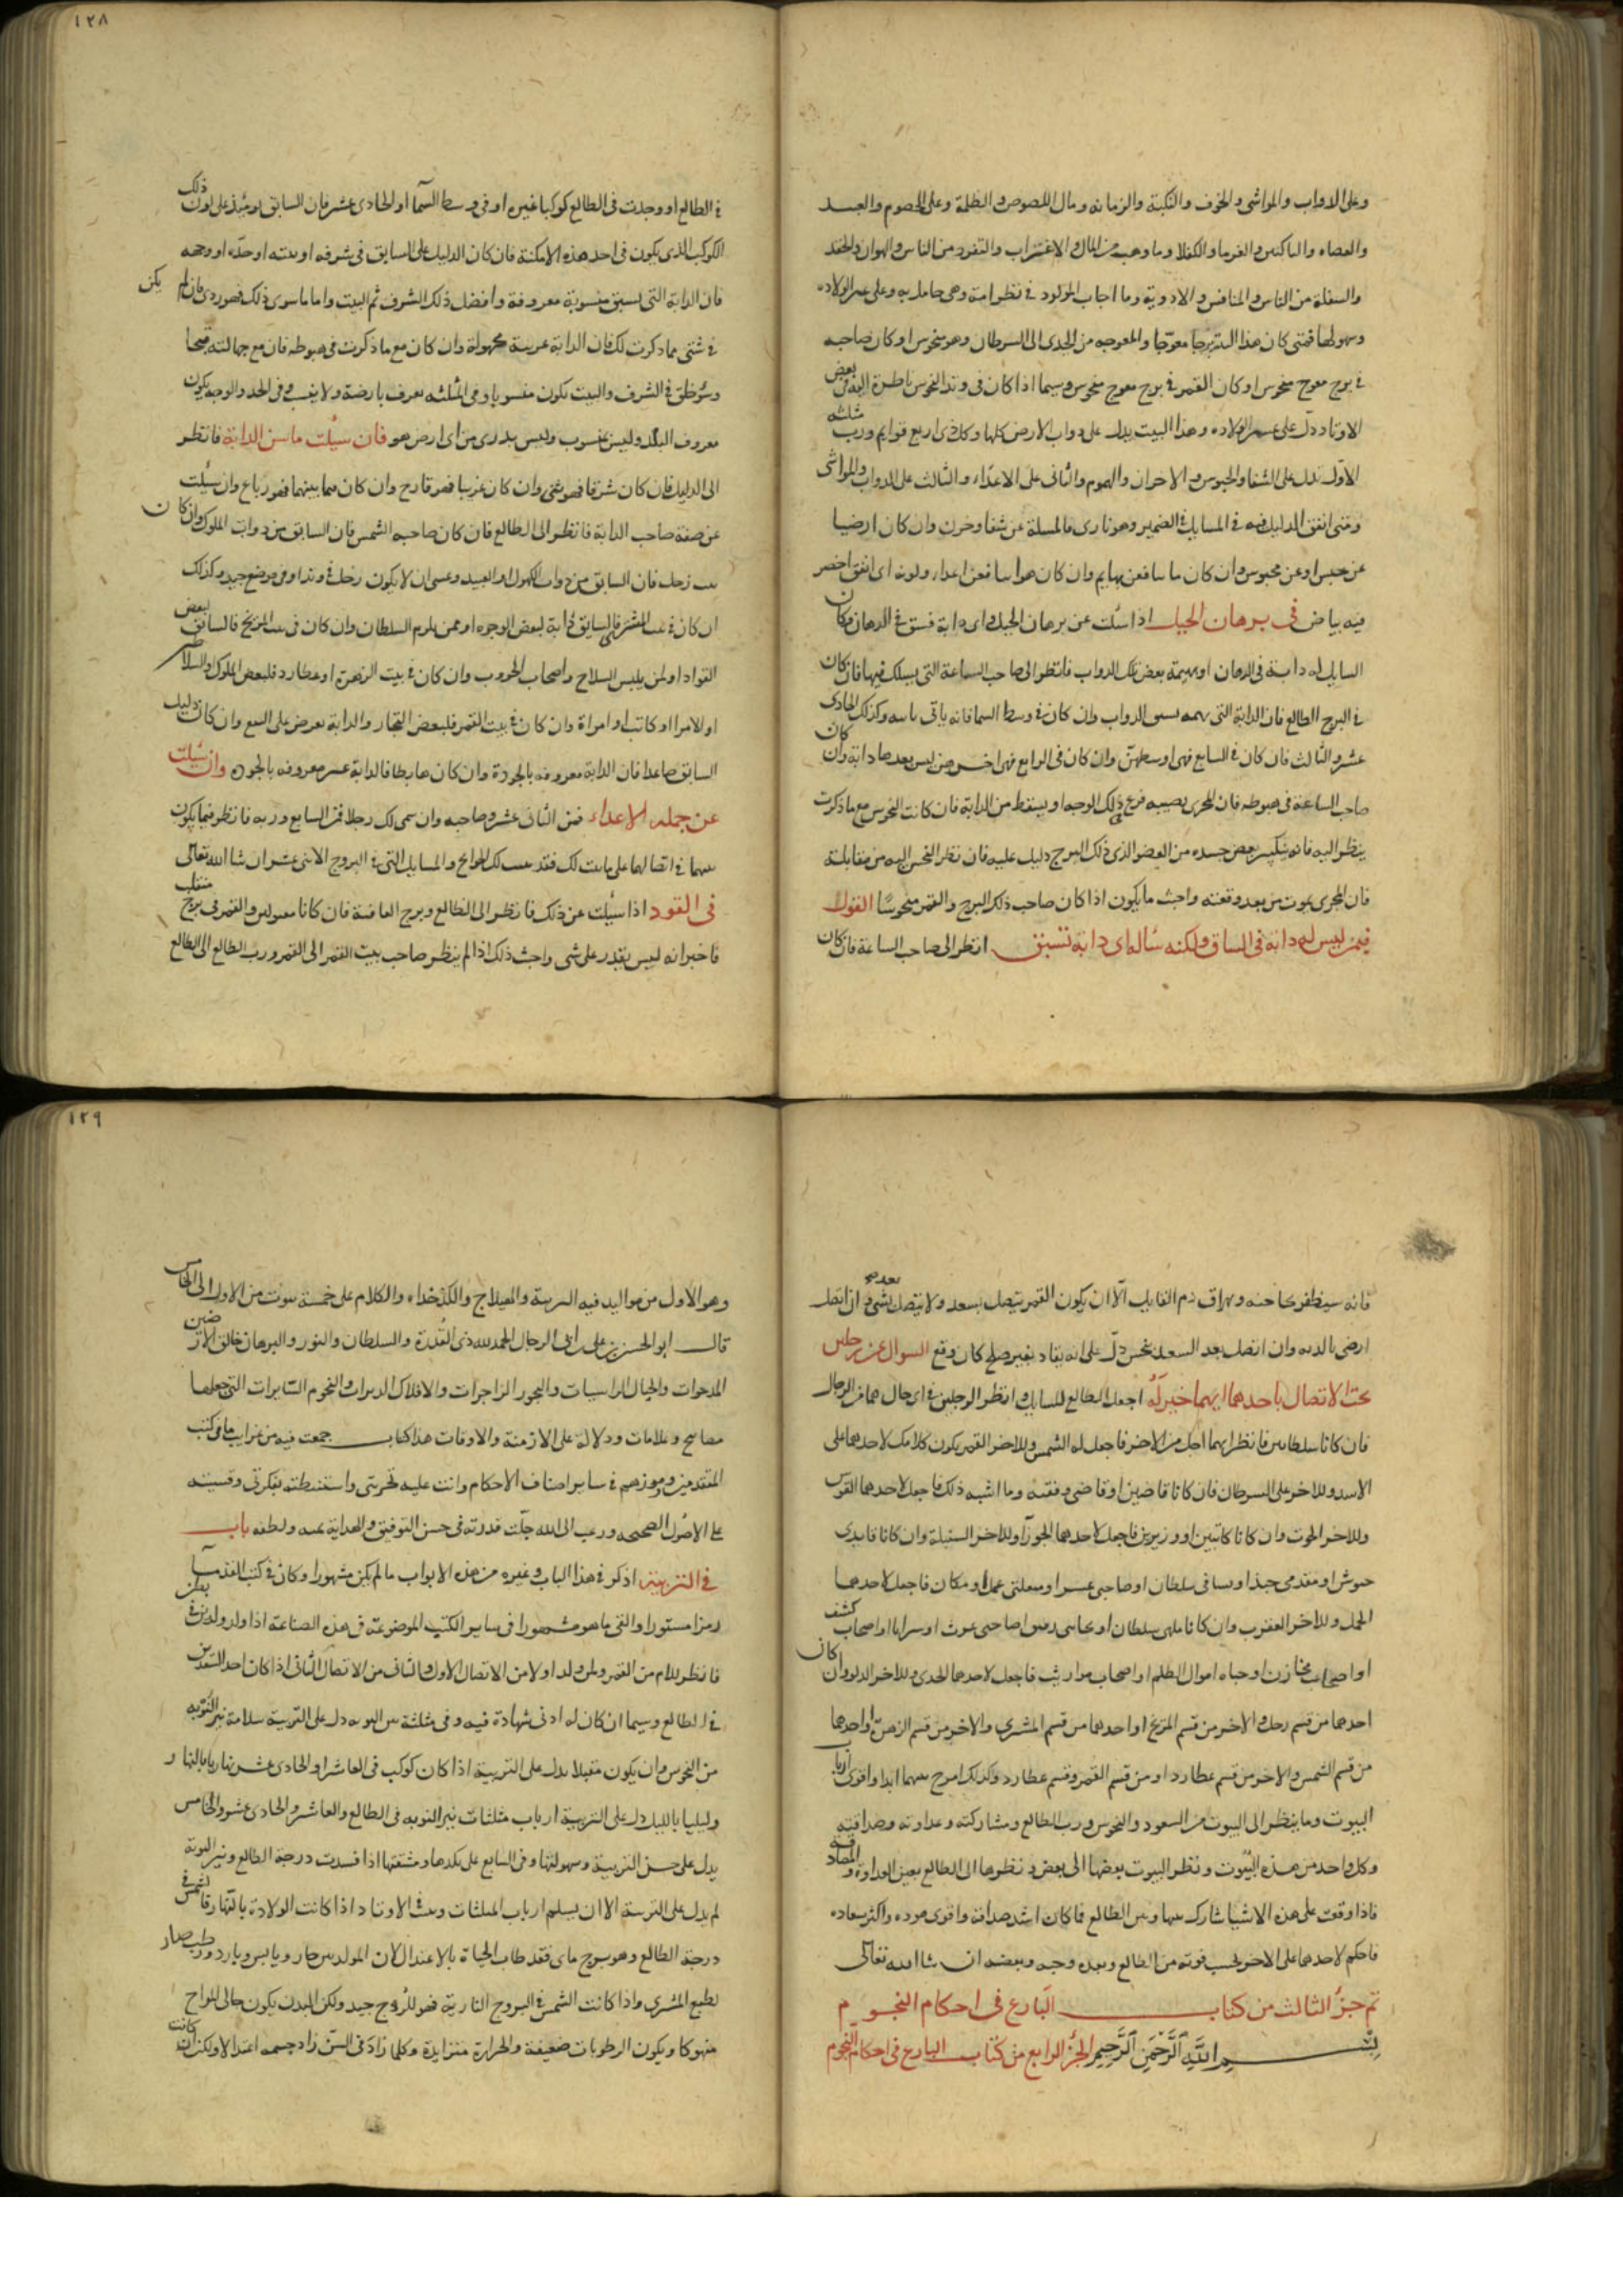 وعلى الدواب والمواشى والخوف والنكبة والزمانه ومال اللصوص والظلمة وعلى الخصوم والعبيد
والعصاه والغرما والكفلا وما وهب من المال والاغتراب والتفرد من الناس والهوان والحقد
والسفلة من الناس والمنافس والادوية وما اجاب المولود فى نظر امه وهى حامل به وعلى عسر الولاده
وسهولتها فمتى كان هذا البيت برجا معوجا والمعوجه من الجدى الى السرطان وهو منحوس او كان صاحبه
فى برج معوج منحوس او كان القمر فى برج معوج منحوس وسيما اذا كان فى وتد النحوس ناظرة اليه فى بعض
الاوتاد دل على عسر الولاده وهذا البيت يدل على دواب الارض كلها وكل ذى اربع قوايم ورب مثلثه
الاول يدل على الشقا والحبوس والاحزان والهموم والثانى على الاعداء والثالث على الدواب والمواشى
ومتى اتفق الدليل فيه فى المسايل فى الضمير وهو نارى فالمسلة عن شقا وحزن وان كان ارضيا
عن حبس او عن محبوس وان كان ماييا فعن بهايم وان كان هواييا فعن اعداء ولونه اى اتفق اخضر
فيه بياض فى برهان الخيل اذا سئلت عن برهان الخيل واى دابة تسبق فى الرهان وكان
السايل له دابة فى الرهان او بهيمة بعض تلك الدواب فانظر الى صاحب الساعة التى يسلك فيها فان كان
فى البرج الطالع فان الدابة التى تهمه تسبق الدواب وان كان فى وسط السما فانه ياتى باسه وكذلك الحادى
عشر والثالث فان كان فى السابع فهى اوسطهن وان كان فى الرابع فهى اخرهن ليس بعدها دابة وان كان
صاحب الساعة فى هبوطه فان المجرى يصيبه فزع فى ذلك الوجه او يسقط من الدابة فان كانت النحوس مع ما ذكرت
ينظر اليه فانه ينكسر بعض جسده من العضو الذى ذلك البرج دليل عليه فان نظر النحس اليه من مقابلة
فان المجرى يموت من بعد وقعته واخبث ما يكون اذا كان صاحب ذلك البرج والقمر منحوسا القول
فيمن ليس له دابة فى السباق ولكنه ساله اى دابة تسبق انظر الى صاحب الساعة فان كان
١٢٨
فى الطالع او وجدت فى الطالع كوكبا غيره او فى وسط السما او الحادى عشر فان السابق يومئذ على لون ذلك
الكوكب الذى يكون فى احد هذه الامكنة فان كان الدليل على السابق فى شرفه او بيته او حده او وجهه
فان الدابة التى تسبق منسوبة معروفة وافضل ذلك الشرف ثم البيت واما ما سوى ذلك فهو ردى فان لم يكن
فى شئ مما ذكرت لك فان الدابة غريبة مجهولة وان كان مع ما ذكرت فى هبوطه فان مع جهالته قبحا
وسوء خلق فى الشرف والبيت تكون منسوبا وفى المثلثه يعرف بارضه ولا ينسب وفى الحد والوجه يكون
معروف البلد وليس بمنسوب وليس يدرى من اى ارض هو فان سئلت ما سن الدابة فانظر
الى الدليل فان كان شرقيا فهو ثنى وان كان غربيا فهو قارح وان كان فيما بينهما فهو رباع وان سئلت
عن صفة صاحب الدابة فانظر الى الطالع فان كان صاحبه الشمس فان السابق من دواب الملوك وان كان
بيت زحل فان السابق من دواب الكهول او العبيد وعسى ان لا يكون زحل فى وتد او فى موضع جيد وكذلك
ان كان فى بيت المشترى فالسابق دابة لبعض الوجوه او ممن يلزم السلطان وان كان فى بيت المريخ فالسابق لبعض
القواد او لمن يلبس السلاح واصحاب الحروب وان كان فى بيت الزهرة او عطارد فلبعض الملوك والسلاطين
او الامرا او كاتب او امراة وان كان فى بيت القمر فلبعض التجار والدابة تعرض على البيع وان كان دليل
السابق صاعدا فان الدابة معروفه بالجودة وان كان هابطا فالدابة غير معروفه بالجوده وان سئلت
عن جملة الاعداء فمن الثانى عشر وصاحبه وان سمى لك رجلا فمن السابع وربه فانظر فيما يكون
بينهما فى اتصالهما على ما بينت لك فقد بينت لك الحوايج والمسايل التى فى البروج الاثنى عشر ان شا الله تعالى
فى القود اذا سئلت عن ذلك فانظر الى الطالع وبرج العاقبة فان كانا مقبولين والقمر فى برج منقلب
فاخبر انه ليس يقدر على شى واخبث ذلك اذا لم ينظر صاحب بيت القمر الى القمر ورب الطالع الى الطالع
فانه سيظفر بحاجته ويهراق دم القاتل الا ان يكون القمر يتصل بسعد ولا يتصل بشئ بعده وان اتصل
ارضى بالديه وان اتصل بعد السعد بنحس دل على انه يقاد بغير صلح كان وقع السوال عن رجلين
تحت الاتصال باحدهما ايهما خير له اجعل الطالع للسايل وانظر الرجلين فى اى حال هما من الرجال
فان كانا سلطانين فانظر ايهما اجل من الاخر فاجعل له الشمس وللاخر القمر يكون كلامك لاحدهما على
الاسد وللاخر على السرطان فان كانا قاضيين او قاضى وفقيه وما اشبه ذلك فاجعل لاحدهما القوس
وللاخر الحوت وان كانا كاتبين او وزيرين فاجعل لاحدهما الجوزا وللاخر السنبلة وان كانا قايدى
جيوش او مقدمى جند او سيافى سلطان او صاحبى عسس او متعلقى عمل او مكان فاجعل لاحدهما
الحمل وللاخر العقرب وان كانا ملهى سلطان او صاحبى غوث او سرايا او اصحاب كشف
او اصحاب مخازن او جباه اموال الظلم او اصحاب مواريث فاجعل لاحدهما الجدى وللاخر الدلو وان كان
احدهما من قسم زحل والاخر من قسم المريخ او احدهما من قسم المشترى والاخر من قسم الزهرة او احدهما
من قسم الشمس والاخر من قسم عطارد او من قسم القمر وقسم عطارد وكذلك امزج بينهما ابدا واقوى ارباب
البيوت وما ينظر الى البيوت من السعود والنحوس ورب الطالع ومشاركته وعداوته وصداقته
وكل واحد من هذه البيوت ونظر البيوت بعضها الى بعض ونظرها الى الطالع بعين العداوة والمصادقه
فاذا وقعت على هذه الاشيا شارك بينها وبين الطالع فما كان اشد صداقه واقوى موده واكثر سعاده
فاحكم لاحدهما على الاخر بحسب قوته من الطالع وبعده وحبه وبغضه ان شا الله تعالى
تم جزؤ الثالث من كتاب البارع فى احكام النجوم
بسم الله الرحمن الرحيم الجزؤ الرابع من كتاب البارع فى احكام النجوم
١٢٩
وهو الاول من مواليد فيه التربية والهيلاج والكدخداه والكلام على خمسة بيوت من الاول الى الخامس
قال ابو الحسن على بن ابى الرجال الحمد لله ذى القدرة والسلطان والنور والبرهان خالق الارضين
المدحوات والجبال الراسيات والبحور الزاجرات والافلاك الدايرات والنجوم السايرات التى جعلها
مصابيح وعلامات ودلالة على الازمنة والاوقات هذا كتاب جمعت فيه من غرايب ما فى كتب
المتقدمين ورموزهم فى ساير اصناف الاحكام واتت عليه تجربتى واستنبطته بفكرتى وقسيته
على الاصول الصحيحه ورغبت الى الله جلت قدرته فى حسن التوفيق والهداية بمنه ولطفه باب
فى التربية اذكر فى هذا الباب وغيره من هذه الابواب ما لم يكن مشهورا وكان فى كتب القدما
رمزا مستورا والقى ما هو مشهورا فى ساير الكتب الموضوعة فى هذه الصناعة اذا ولد ولدين فى بطن
فانظر للام من القمر ولمن ولد اولا من الاتصال الاول والثانى من الاتصال الثانى اذا كان احد السعدين
فى الطالع وسيما ان كان له ادنى شهادة فيه وفى مثلثة نير النوبه دل على التربية سلامة نير النوبه
من النحوس وان يكون مقبلا يدل على التربية اذا كان كوكب فى العاشر او الحادى عشر نهاريا بالنهار
وليليا بالليل دل على التربية ارباب مثلثات نير النوبه فى الطالع والعاشر والحادى عشر والخامس
يدل على حسن التربية وسهولتها وفى السابع على نكدها ومشقتها اذا فسدت درجة الطالع ونير النوبة
لم يدل على التربية الا ان يسلم ارباب المثلثات وبيت الاوتاد اذا كانت الولادة بالنهار فالشمس فى
درجة الطالع وهو برج مائى فقد طاب الحياة بالاعتدال لان المولد بين حار ويابس وبارد ورطب صار
لطبع المشترى واذا كانت الشمس فى البروج النارية فهو للروح جيد ولكن البدن يكون حالى المزاج
منهوكا ويكون الرطوبات ضعيفة والحرارة متزايدة وكلما زاد فى السن زاد جسمه اعتدالا ولكن ان كانت